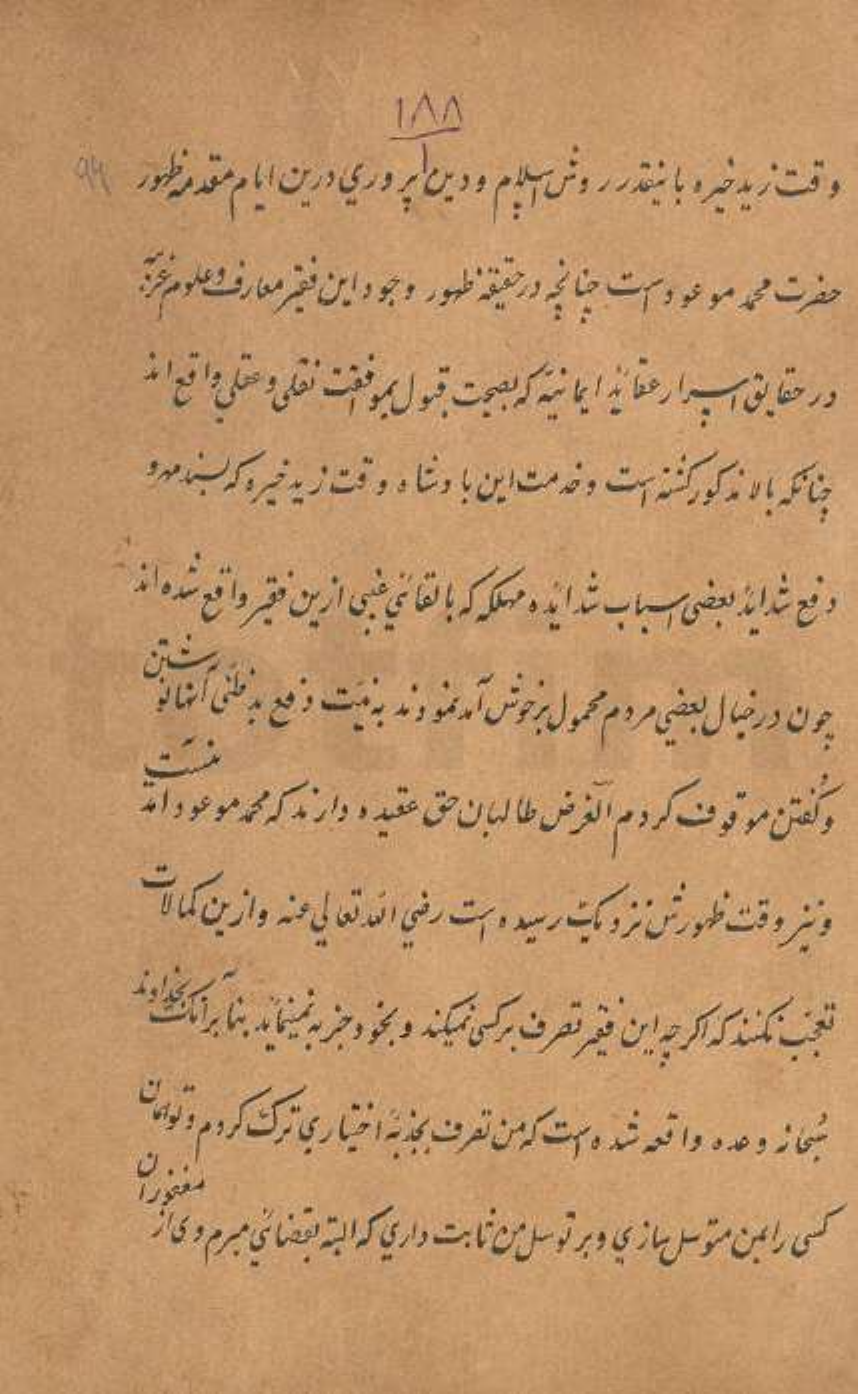 ۱۸۸
۹۴
وقت زید خیره باینقدر روش اسلام و دین پروری درین ایام مقدمه ظهور
حضرت محمد موعود است چنانچه در حقیقه ظهور وجود این فقیر معارف و علوم غریبه
در حقایق اسرار عقائد ایمانیه که بصحت قبول بموافقت نقلی و عقلی واقع اند
چنانکه بالا مذکور گشته است و خدمت این بادشاه وقت زید خیره که
دفع شداید بعضی اسباب شدایده مهلکه که بالقائی غیبی ازین فقیر واقع شده اند
چون در خیال بعضی مردم محمول بر خوش آمد نمودند به نیت دفع بدظنی آنها نوشتن
و گفتن موقوف کردم الغرض طالبان حق عقیده دارند که محمد موعود آمدنیست
و نیز وقت ظهورش نزدیک رسیده است رضی الله تعالی عنه و ازین کمالات
تعجب نکنند که اگرچه این فقیر تصرف بر کسی نمیکند و بخود جذبه نمینماید بنا بر آنکه بخداوند
سبحانه وعده واقعه شده است که من تصرف بجذبهٔ اختیاری ترک کردم و تو همان
کسی را بمن متوسل سازی و بر توسل من ثابت داری که البته بقضائی مبرم وی از مغفوران